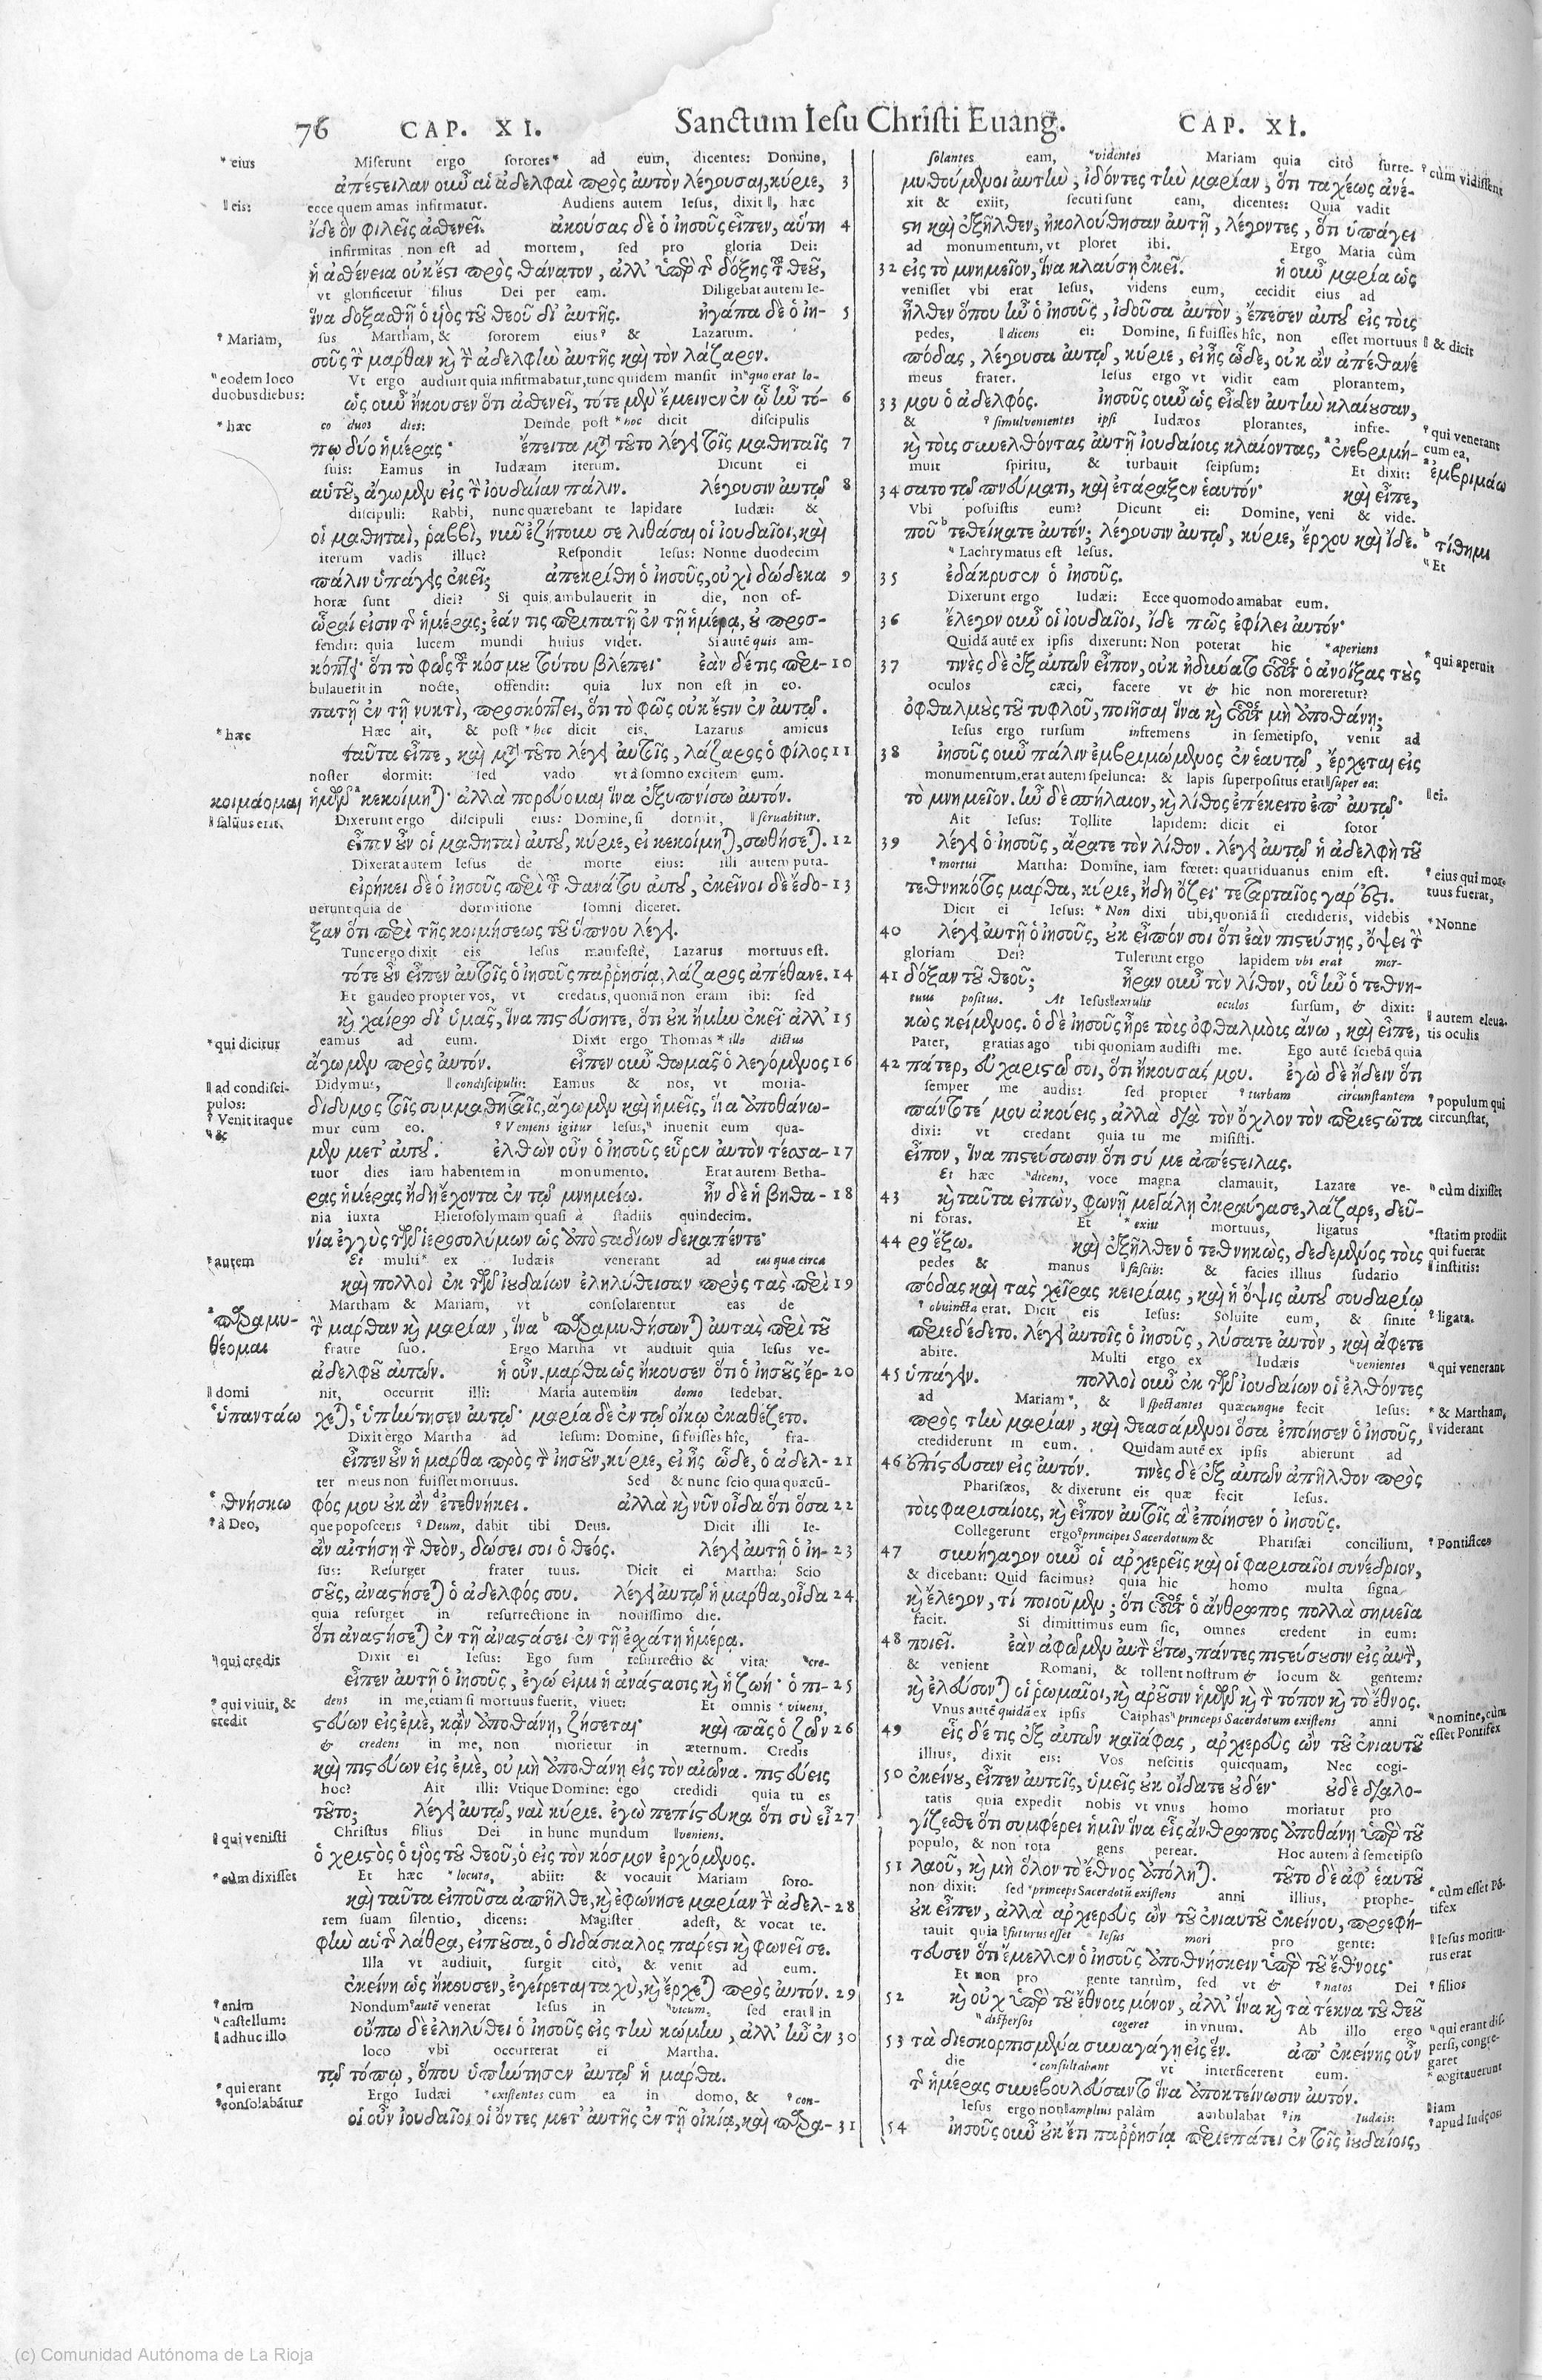 76 CAP. XI. Sanctum Iesu Christi Euang. CAP. XI.
* eius
Miserunt ergo sorores* ad eum, dicentes: Domine,
ἀπέστειλαν οὖν αἱ ἀδελφαὶ πρὸς αὐτὸν λέγουσαι, κύριε, 3
‖ eis:
ecce quem amas infirmatur. Audiens autem Iesus, dixit ‖, hæc
ἴδε ὃν φιλεῖς ἀσθενεῖ. ἀκούσας δὲ ὁ ἰησοῦς εἶπεν, αὕτη 4
infirmitas non est ad mortem, sed pro gloria Dei:
ἡ ἀσθένεια οὐκ ἔστι πρὸς θάνατον, ἀλλ' ὑπὲρ τῆς δόξης τοῦ θεοῦ,
vt glorificetur filius Dei per eam. Diligebat autem Ie-
ἵνα δοξασθῇ ὁ υἱὸς τοῦ θεοῦ δι' αὐτῆς. ἠγάπα δὲ ὁ ἰη- 5
? Mariam,
sus Martham, & sororem eius? & Lazarum.
σοῦς τὴν μάρθαν καὶ τὴν ἀδελφὴν αὐτῆς καὶ τὸν λάζαρον.
" eodem loco
duobus diebus:
Vt ergo audiuit quia infirmabatur, tunc quidem mansit in "quo erat lo-
ὡς οὖν ἤκουσεν ὅτι ἀσθενεῖ, τότε μὲν ἔμεινεν ἐν ᾧ ἦν τό- 6
* hæc
co duos dies: Deinde post * hoc dicit discipulis
πῳ δύο ἡμέρας· ἔπειτα μετὰ τοῦτο λέγει τοῖς μαθηταῖς 7
suis: Eamus in Iudæam iterum. Dicunt ei
αὑτοῦ, ἄγωμεν εἰς τὴν ἰουδαίαν πάλιν. λέγουσιν αὐτῷ 8
discipuli: Rabbi, nunc quærebant te lapidare Iudæi: &
οἱ μαθηταὶ, ῥαββὶ, νῦν ἐζήτουν σε λιθάσαι οἱ ἰουδαῖοι, καὶ
iterum vadis illuc? Respondit Iesus: Nonne duodecim
πάλιν ὑπάγεις ἐκεῖ; ἀπεκρίθη ὁ ἰησοῦς, οὐχὶ δώδεκα 9
horæ sunt diei? Si quis ambulauerit in die, non of-
ὧραί εἰσιν τῆς ἡμέρας; ἐάν τις περιπατῇ ἐν τῇ ἡμέρᾳ, οὐ προσ-
fendit: quia lucem mundi huius videt. Si autē quis am-
κόπτει· ὅτι τὸ φῶς τοῦ κόσμου τούτου βλέπει· ἐὰν δέ τις περι- 10
bulauerit in nocte, offendit: quia lux non est in eo.
πατῇ ἐν τῇ νυκτὶ, προσκόπτει, ὅτι τὸ φῶς οὐκ ἔστιν ἐν αὐτῷ.
* hæc
Hæc ait, & post * hoc dicit eis, Lazarus amicus
ταῦτα εἶπε, καὶ μετὰ τοῦτο λέγει αὐτοῖς, λάζαρος ὁ φίλος 11
noster dormit: sed vado vt à somno excitem eum.
κοιμάομαι
ἡμῶν ᵃ κεκοίμηται· ἀλλὰ πορεύομαι ἵνα ἐξυπνίσω αὐτόν.
‖ saluus erit.
Dixerunt ergo discipuli eius: Domine, si dormit, ‖ seruabitur.
εἶπον οὖν οἱ μαθηταὶ αὐτοῦ, κύριε, εἰ κεκοίμηται, σωθήσεται. 12
Dixerat autem Iesus de morte eius: illi autem puta-
εἰρήκει δὲ ὁ ἰησοῦς περὶ τοῦ θανάτου αὐτοῦ, ἐκεῖνοι δὲ ἔδο- 13
uerunt quia de dormitione somni diceret.
ξαν ὅτι περὶ τῆς κοιμήσεως τοῦ ὕπνου λέγει.
Tunc ergo dixit eis Iesus manifestè, Lazarus mortuus est.
τότε οὖν εἶπεν αὐτοῖς ὁ ἰησοῦς παῤῥησίᾳ, λάζαρος ἀπέθανε. 14
Et gaudeo propter vos, vt credatis, quoniā non eram ibi: sed
καὶ χαίρω δι' ὑμᾶς, ἵνα πιστεύσητε, ὅτι οὐκ ἤμην ἐκεῖ· ἀλλ' 15
* qui dicitur
eamus ad eum. Dixit ergo Thomas * ille dictus
ἄγωμεν πρὸς αὐτόν. εἶπεν οὖν θωμᾶς ὁ λεγόμενος 16
‖ ad condisci-
pulos:
Didymus, ‖ condiscipulis: Eamus & nos, vt moria-
δίδυμος τοῖς συμμαθηταῖς, ἄγωμεν καὶ ἡμεῖς, ἵνα ἀποθάνω-
? Venit itaque
" &
mur cum eo. ? Veniens igitur Iesus, " inuenit eum qua-
μεν μετ' αὐτοῦ. ἐλθὼν οὖν ὁ ἰησοῦς εὗρεν αὐτὸν τέσσα- 17
tuor dies iam habentem in monumento. Erat autem Betha-
ρας ἡμέρας ἤδη ἔχοντα ἐν τῷ μνημείῳ. ἦν δὲ ἡ βηθα- 18
nia iuxta Hierosolymam quasi à stadiis quindecim.
νία ἐγγὺς τῶν ἱεροσολύμων ὡς ἀπὸ σταδίων δεκαπέντε·
* autem
Et multi * ex Iudæis venerant ad eas quæ circa
καὶ πολλοὶ ἐκ τῶν ἰουδαίων ἐληλύθεισαν πρὸς τὰς περὶ 19
Martham & Mariam, vt consolarentur eas de
ᵃ παραμυ-
θέομαι
τὴν μάρθαν καὶ μαρίαν, ἵνα ᵇ παραμυθήσωνται αὐτὰς περὶ τοῦ
fratre suo. Ergo Martha vt audiuit quia Iesus ve-
ἀδελφοῦ αὐτῶν. ἡ οὖν μάρθα ὡς ἤκουσεν ὅτι ὁ ἰησοῦς ἔρ- 20
‖ domi
nit, occurrit illi: Maria autem ‖ in domo sedebat.
ᶜ ὑπαντάω
χεται, ᶜ ὑπήντησεν αὐτῷ· μαρία δὲ ἐν τῷ οἴκῳ ἐκαθέζετο.
Dixit ergo Martha ad Iesum: Domine, si fuisses hîc, fra-
εἶπεν οὖν ἡ μάρθα πρὸς τὸν ἰησοῦν, κύριε, εἰ ἦς ὧδε, ὁ ἀδελ- 21
ter meus non fuisset mortuus. Sed & nunc scio quia quæcū-
θνήσκω
φός μου οὐκ ἂν ᵈ ἐτεθνήκει. ἀλλὰ καὶ νῦν οἶδα ὅτι ὅσα 22
? à Deo,
que poposceris ? Deum, dabit tibi Deus. Dicit illi Ie-
ἂν αἰτήσῃ τὸν θεὸν, δώσει σοι ὁ θεός. λέγει αὐτῇ ὁ ἰη- 23
sus: Resurget frater tuus. Dicit ei Martha: Scio
σοῦς, ἀναστήσεται ὁ ἀδελφός σου. λέγει αὐτῷ ἡ μάρθα, οἶδα 24
quia resurget in resurrectione in nouissimo die.
ὅτι ἀναστήσεται ἐν τῇ ἀναστάσει ἐν τῇ ἐσχάτῃ ἡμέρᾳ.
" qui credit
Dixit ei Iesus: Ego sum resurrectio & vita: "cre-
εἶπεν αὐτῇ ὁ ἰησοῦς, ἐγώ εἰμι ἡ ἀνάστασις καὶ ἡ ζωή· ὁ πι- 25
? qui viuit, &
credit
dens in me, etiam si mortuus fuerit, viuet: Et omnis ? viuens,
στεύων εἰς ἐμὲ, κἂν ἀποθάνῃ, ζήσεται· καὶ πᾶς ὁ ζῶν 26
& credens in me, non morietur in æternum. Credis
καὶ πιστεύων εἰς ἐμὲ, οὐ μὴ ἀποθάνῃ εἰς τὸν αἰῶνα. πιστεύεις
hoc? Ait illi: Vtique Domine: ego credidi quia tu es
τοῦτο; λέγει αὐτῷ, ναὶ κύριε. ἐγὼ πεπίστευκα ὅτι σὺ εἶ 27
‖ qui venisti
Christus filius Dei in hunc mundum ‖veniens.
ὁ χριστὸς ὁ υἱὸς τοῦ θεοῦ, ὁ εἰς τὸν κόσμον ἐρχόμενος.
* cùm dixisset
Et hæc * locuta, abiit: & vocauit Mariam soro-
καὶ ταῦτα εἰποῦσα ἀπῆλθε, καὶ ἐφώνησε μαρίαν τὴν ἀδελ- 28
rem suam silentio, dicens: Magister adest, & vocat te.
φὴν αὑτῆς λάθρα, εἰποῦσα, ὁ διδάσκαλος πάρεστι καὶ φωνεῖ σε.
Illa vt audiuit, surgit citò, & venit ad eum.
ἐκείνη ὡς ἤκουσεν, ἐγείρεται ταχὺ, καὶ ἔρχεται πρὸς αὐτόν. 29
? enim
" castellum:
‖ adhuc illo
Nondum ? autē venerat Iesus in "vicum, sed erat ‖ in
οὔπω δὲ ἐληλύθει ὁ ἰησοῦς εἰς τὴν κώμην, ἀλλ' ἦν ἐν 30
loco vbi occurrerat ei Martha.
τῷ τόπῳ, ὅπου ὑπήντησεν αὐτῷ ἡ μάρθα.
* qui erant
? consolabātur
Ergo Iudæi * existentes cum ea in domo, & ? con-
οἱ οὖν ἰουδαῖοι οἱ ὄντες μετ' αὐτῆς ἐν τῇ οἰκίᾳ, καὶ παρα- 31
solantes eam, "videntes Mariam quia citò surre-
? cùm vidissent
μυθούμενοι αὐτὴν, ἰδόντες τὴν μαρίαν, ὅτι ταχέως ἀνέ-
xit & exiit, secuti sunt eam, dicentes: Quia vadit
στη καὶ ἐξῆλθεν, ἠκολούθησαν αὐτῇ, λέγοντες, ὅτι ὑπάγει
ad monumentum, vt ploret ibi. Ergo Maria cùm
32 εἰς τὸ μνημεῖον, ἵνα κλαύσῃ ἐκεῖ. ἡ οὖν μαρία ὡς
venisset vbi erat Iesus, videns eum, cecidit eius ad
ἦλθεν ὅπου ἦν ὁ ἰησοῦς, ἰδοῦσα αὐτὸν, ἔπεσεν αὐτοῦ εἰς τοὺς
pedes, ‖ dicens ei: Domine, si fuisses hîc, non esset mortuus
‖ & dicit
πόδας, λέγουσα αὐτῷ, κύριε, εἰ ἦς ὧδε, οὐκ ἂν ἀπέθανέ
meus frater. Iesus ergo vt vidit eam plorantem,
33 μου ὁ ἀδελφός. ἰησοῦς οὖν ὡς εἶδεν αὐτὴν κλαίουσαν,
& ? simul venientes ipsi Iudæos plorantes, infre-
? qui venerant
cum ea,
καὶ τοὺς συνελθόντας αὐτῇ ἰουδαίους κλαίοντας, ᵃ ἐνεβριμή-
ᵃ ἐμβριμάω
muit spiritu, & turbauit seipsum: Et dixit:
34 σατο τῷ πνεύματι, καὶ ἐτάραξεν ἑαυτόν· καὶ εἶπε,
Vbi posuistis eum? Dicunt ei: Domine, veni & vide.
ποῦ ᵇ τεθείκατε αὐτόν; λέγουσιν αὐτῷ, κύριε, ἔρχου καὶ ἴδε.
ᵇ τίθημι
" Lachrymatus est Iesus.
" Et
35 ἐδάκρυσεν ὁ ἰησοῦς.
Dixerunt ergo Iudæi: Ecce quomodo amabat eum.
36 ἔλεγον οὖν οἱ ἰουδαῖοι, ἴδε πῶς ἐφίλει αὐτόν·
Quidā autē ex ipsis dixerunt: Non poterat hic * aperiens
* qui aperuit
37 τινὲς δὲ ἐξ αὐτῶν εἶπον, οὐκ ἠδύνατο οὗτος ὁ ἀνοίξας τοὺς
oculos cæci, facere vt & hic non moreretur?
ὀφθαλμοὺς τοῦ τυφλοῦ, ποιῆσαι ἵνα καὶ οὗτος μὴ ἀποθάνῃ;
Iesus ergo rursum infremens in semetipso, venit ad
38 ἰησοῦς οὖν πάλιν ἐμβριμώμενος ἐν ἑαυτῷ, ἔρχεται εἰς
monumentum. erat autem spelunca: & lapis superpositus erat ‖super ea:
‖ ei.
τὸ μνημεῖον. ἦν δὲ σπήλαιον, καὶ λίθος ἐπέκειτο ἐπ' αὐτῷ·
Ait Iesus: Tollite lapidem: dicit ei soror
39 λέγει ὁ ἰησοῦς, ἄρατε τὸν λίθον. λέγει αὐτῷ ἡ ἀδελφὴ τοῦ
? mortui Martha: Domine, iam fœtet: quatriduanus enim est.
? eius qui mor-
tuus fuerat,
τεθνηκότος μάρθα, κύριε, ἤδη ὄζει· τεταρταῖος γάρ ἐστι.
Dicit ei Iesus: * Non dixi tibi, quoniā si credideris, videbis
* Nonne
40 λέγει αὐτῇ ὁ ἰησοῦς, οὐκ εἶπόν σοι ὅτι ἐὰν πιστεύσῃς, ὄψει τὴν
gloriam Dei? Tulerunt ergo lapidem vbi erat mor-
41 δόξαν τοῦ θεοῦ; ἦραν οὖν τὸν λίθον, οὗ ἦν ὁ τεθνη-
tuus positus. At Iesus ‖ extulit oculos sursum, & dixit:
‖ autem eleua-
tis oculis
κὼς κείμενος. ὁ δὲ ἰησοῦς ἦρε τοὺς ὀφθαλμοὺς ἄνω, καὶ εἶπε,
Pater, gratias ago tibi quoniam audisti me. Ego autē sciebā quia
42 πάτερ, εὐχαριστῶ σοι, ὅτι ἤκουσάς μου. ἐγὼ δὲ ᾔδειν ὅτι
semper me audis: sed propter ? turbam circunstantem
? populum qui
circunstat,
πάντοτέ μου ἀκούεις, ἀλλὰ διὰ τὸν ὄχλον τὸν περιεστῶτα
dixi: vt credant quia tu me misisti.
εἶπον, ἵνα πιστεύσωσιν ὅτι σύ με ἀπέστειλας.
Et hæc "dicens, voce magna clamauit, Lazare ve-
" cùm dixisset
43 καὶ ταῦτα εἰπὼν, φωνῇ μεγάλῃ ἐκραύγασε, λάζαρε, δεῦ-
ni foras. Et * exiit mortuus, ligatus
* statim prodiit
qui fuerat
44 ρο ἔξω. καὶ ἐξῆλθεν ὁ τεθνηκὼς, δεδεμένος τοὺς
pedes & manus ‖ fasciis: & facies illius sudario
‖ institis:
πόδας καὶ τὰς χεῖρας κειρίαις, καὶ ἡ ὄψις αὐτοῦ σουδαρίῳ
? obuincta erat. Dicit eis Iesus: Soluite eum, & sinite
? ligata.
περιεδέδετο. λέγει αὐτοῖς ὁ ἰησοῦς, λύσατε αὐτὸν, καὶ ἄφετε
abire. Multi ergo ex Iudæis "venientes
" qui venerant
45 ὑπάγειν. πολλοὶ οὖν ἐκ τῶν ἰουδαίων οἱ ἐλθόντες
ad Mariam *, & ‖ spectantes quæcunque fecit Iesus:
* & Martham,
‖ viderant
πρὸς τὴν μαρίαν, καὶ θεασάμενοι ὅσα ἐποίησεν ὁ ἰησοῦς,
crediderunt in eum. Quidam autē ex ipsis abierunt ad
46 ἐπίστευσαν εἰς αὐτόν. τινὲς δὲ ἐξ αὐτῶν ἀπῆλθον πρὸς
Pharisæos, & dixerunt eis quæ fecit Iesus.
τοὺς φαρισαίους, καὶ εἶπον αὐτοῖς ἃ ἐποίησεν ὁ ἰησοῦς.
Collegerunt ergo ? principes Sacerdotum & Pharisæi concilium,
? Pontifices
47 συνήγαγον οὖν οἱ ἀρχιερεῖς καὶ οἱ φαρισαῖοι συνέδριον,
& dicebant: Quid facimus? quia hic homo multa signa
καὶ ἔλεγον, τί ποιοῦμεν; ὅτι οὗτος ὁ ἄνθρωπος πολλὰ σημεῖα
facit. Si dimittimus eum sic, omnes credent in eum:
48 ποιεῖ. ἐὰν ἀφῶμεν αὐτὸν οὕτω, πάντες πιστεύσουσιν εἰς αὐτὸν,
& venient Romani, & tollent nostrum & locum & gentem:
καὶ ἐλεύσονται οἱ ῥωμαῖοι, καὶ ἀροῦσιν ἡμῶν καὶ τὸν τόπον καὶ τὸ ἔθνος.
Vnus autē quidā ex ipsis Caiphas "princeps Sacerdotum existens anni
" nomine, cùm
esset Pontifex
49 εἷς δέ τις ἐξ αὐτῶν καϊάφας, ἀρχιερεὺς ὢν τοῦ ἐνιαυτοῦ
illius, dixit eis: Vos nescitis quicquam, Nec cogi-
50 ἐκείνου, εἶπεν αὐτοῖς, ὑμεῖς οὐκ οἴδατε οὐδέν· οὐδὲ διαλο-
tatis quia expedit nobis vt vnus homo moriatur pro
γίζεσθε ὅτι συμφέρει ἡμῖν ἵνα εἷς ἄνθρωπος ἀποθάνῃ ὑπὲρ τοῦ
populo, & non tota gens pereat. Hoc autem à semetipso
51 λαοῦ, καὶ μὴ ὅλον τὸ ἔθνος ἀπόληται. τοῦτο δὲ ἀφ' ἑαυτοῦ
non dixit: sed * princeps Sacerdotū existens anni illius, prophe-
* cùm esset Pō-
tifex
οὐκ εἶπεν, ἀλλὰ ἀρχιερεὺς ὢν τοῦ ἐνιαυτοῦ ἐκείνου, προεφή-
tauit quia ‖futurus esset Iesus mori pro gente:
‖ Iesus moritu-
rus erat
τευσεν ὅτι ἔμελλεν ὁ ἰησοῦς ἀποθνήσκειν ὑπὲρ τοῦ ἔθνους·
Et non pro gente tantùm, sed vt & ? natos Dei
? filios
52 καὶ οὐχ ὑπὲρ τοῦ ἔθνους μόνον, ἀλλ' ἵνα καὶ τὰ τέκνα τοῦ θεοῦ
" dispersos cogeret in vnum. Ab illo ergo
" qui erant dis-
persi, congre-
garet
53 τὰ διεσκορπισμένα συναγάγῃ εἰς ἕν. ἀπ' ἐκείνης οὖν
die * consultabant vt interficerent eum.
* cogitauerunt
τῆς ἡμέρας συνεβουλεύσαντο ἵνα ἀποκτείνωσιν αὐτόν.
Iesus ergo non ‖ amplius palàm ambulabat ? in Iudæis:
‖ iam
? apud Iudęos:
54 ἰησοῦς οὖν οὐκ ἔτι παῤῥησίᾳ περιεπάτει ἐν τοῖς ἰουδαίοις,
(c) Comunidad Autónoma de La Rioja